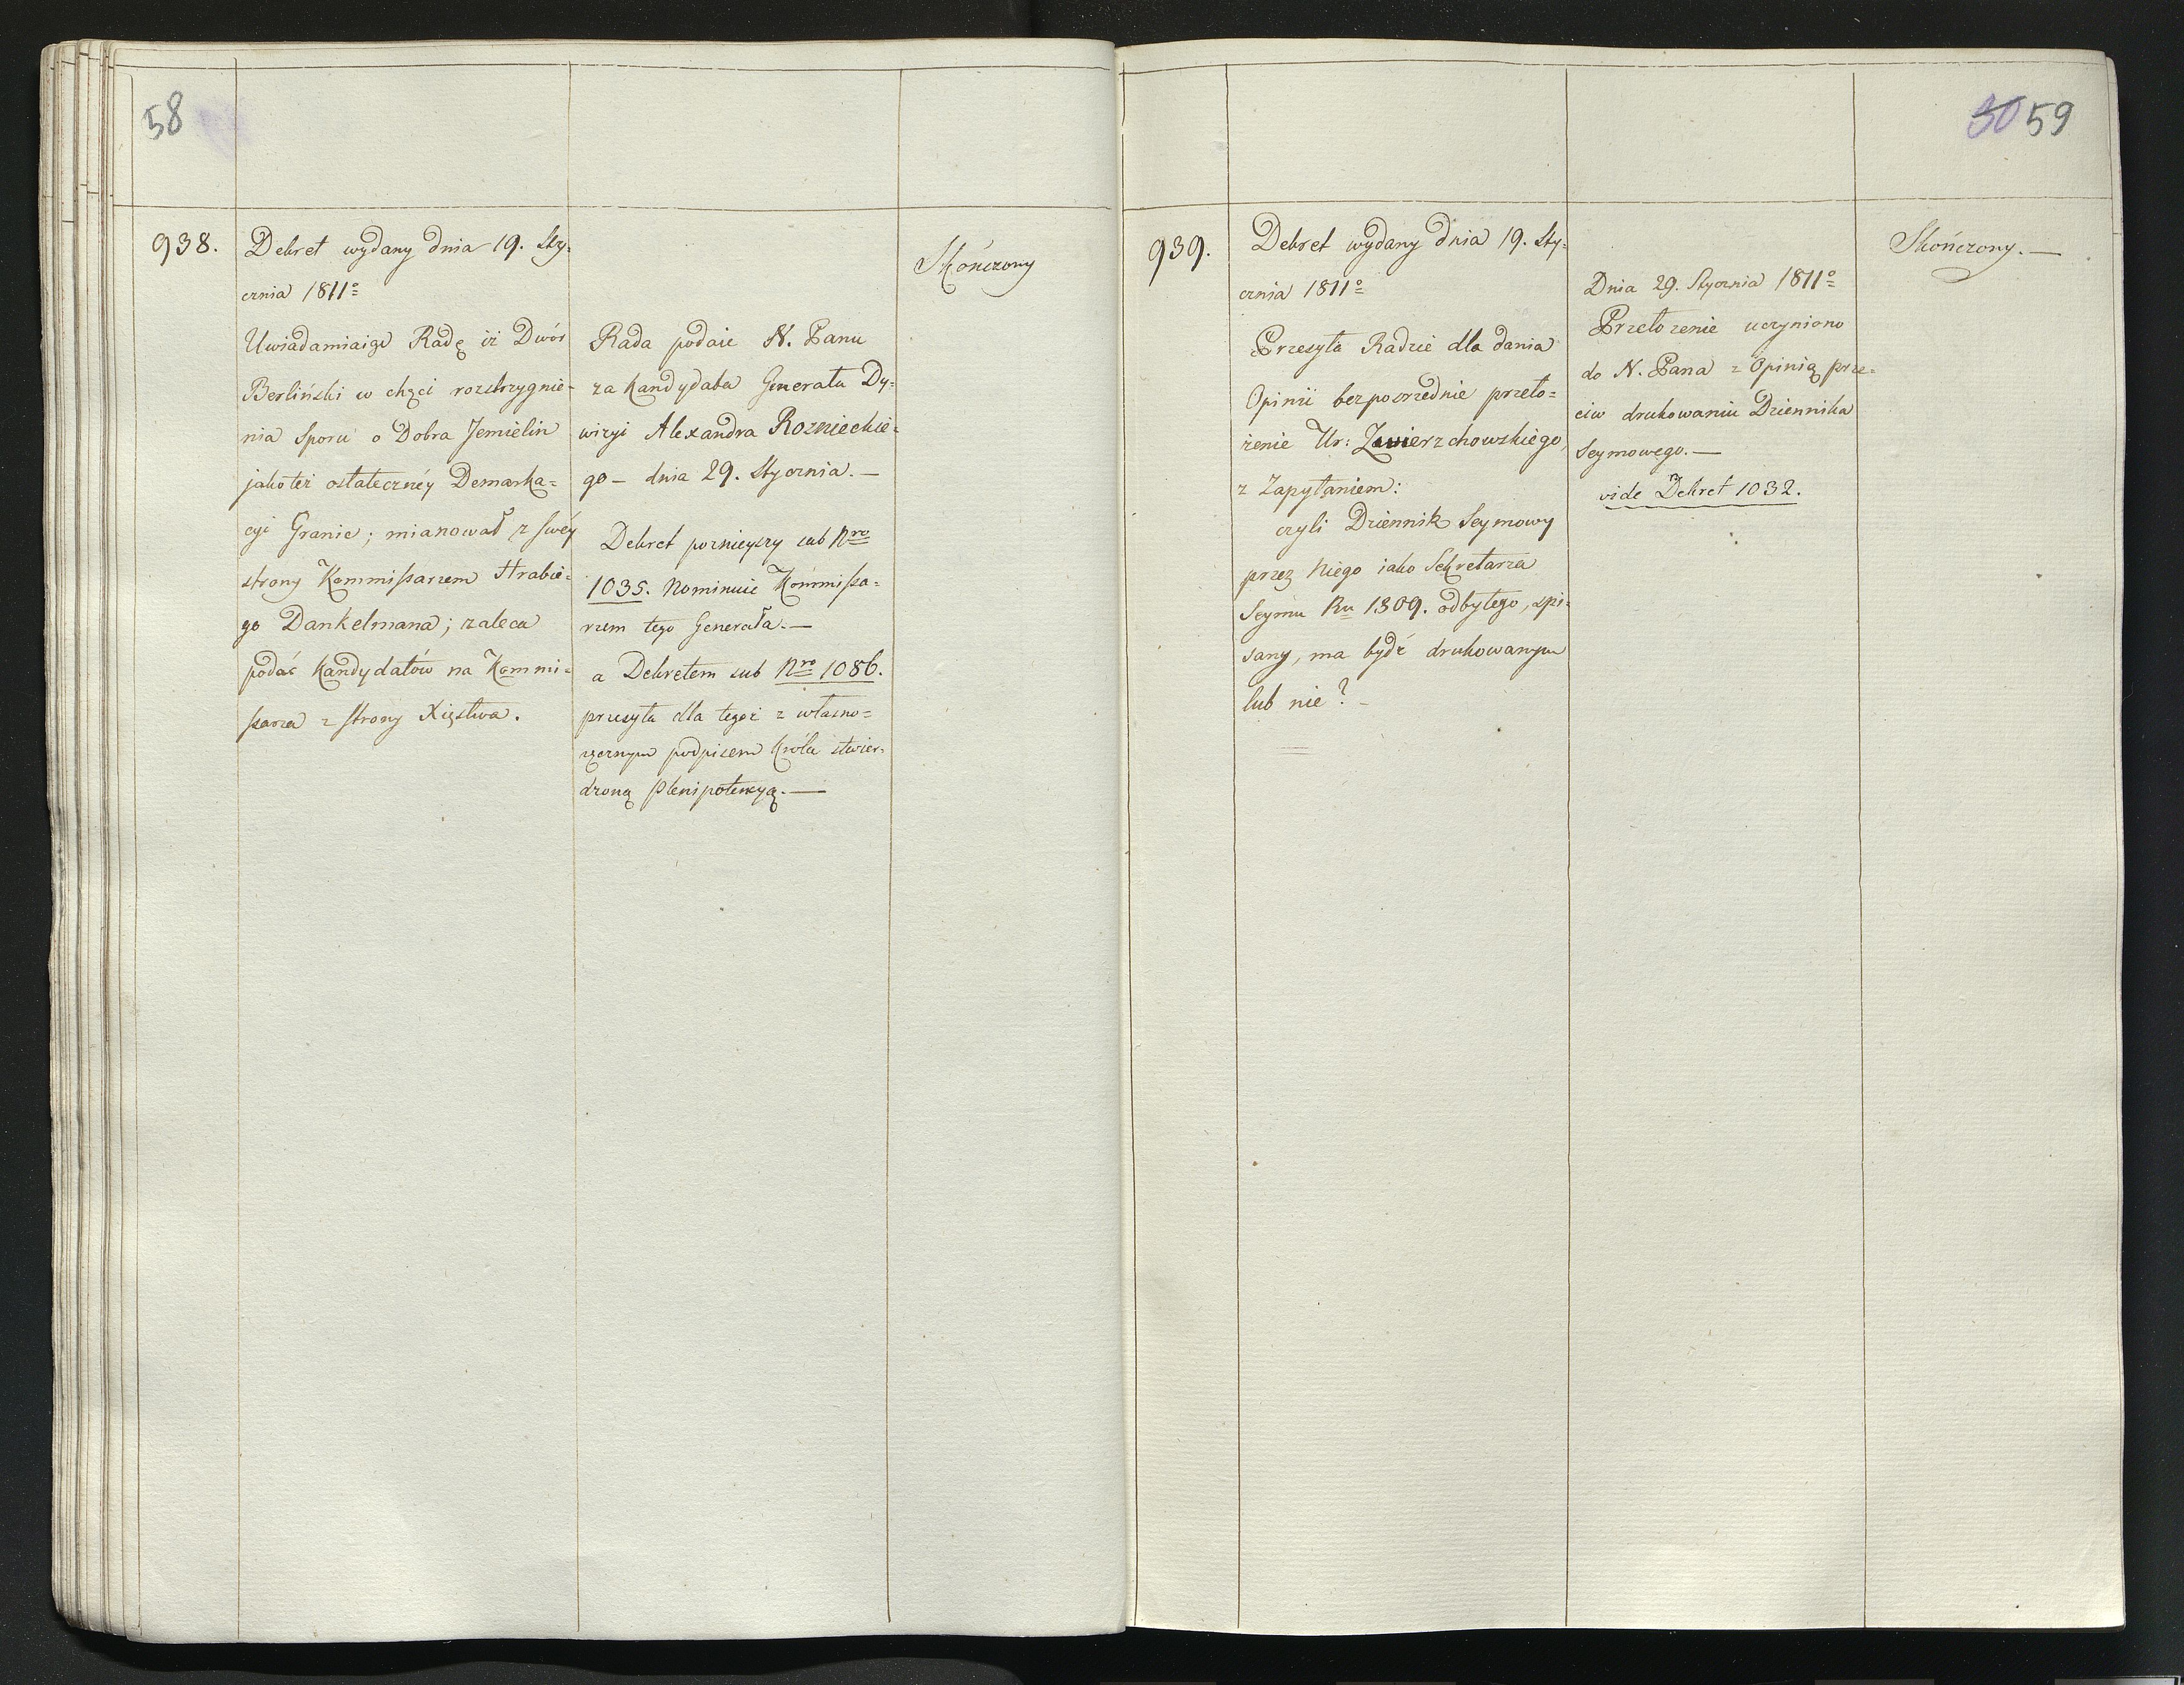 58
938.
Dekret wydany dnia 19. Sty=
cznia 1811º
Uwiadamiaiąc Radę iż Dwór
Berliński w chęci rozstrzygnie=
nia Sporu o Dobra Jemielin
jakoteż ostatecznéy Demarka=
cyi Granic; mianował z swéy
strony Kommissarzem Hrabie=
go Dankelmana; zaleca
podać Kandydatów na Kommi=
ssarza z strony Xięstwa.
Rada podaie N. Panu
za Kandydata Generała Dy=
wizyi Alexandra Rozniechie=
go – dnia 29. Stycznia. —
Dekret poznieyszy sub Nro
1035. Nominuie Kommissa=
rzem tego Generała. —
a Dekretem sub Nro 1086.
przesyła dla tegoż z własno=
ręcznym podpisem Króla stwier=
dzoną Plenipotencyą. —
Skończony
30 59
939.
Dekret wydany dnia 19. Sty=
cznia 1811º
Przesyła Radzie dla dania
Opinii bezpośrednie przeło=
żenie Ur: Zwierzchowskiego,
z Zapytaniem:
czyli Dziennik Seymowy
przez Niego iako Sekretarza
Seymu Ru 1809. odbytego, spi=
sany, ma bydź drukowanym
lub nie? –
Dnia 29. Stycznia 1811º
Przełożenie uczyniono
do N. Pana z Opinią prze=
ciw drukowaniu Dziennika
Seymowego. —
vide Dekret 1032.
Skończony. —